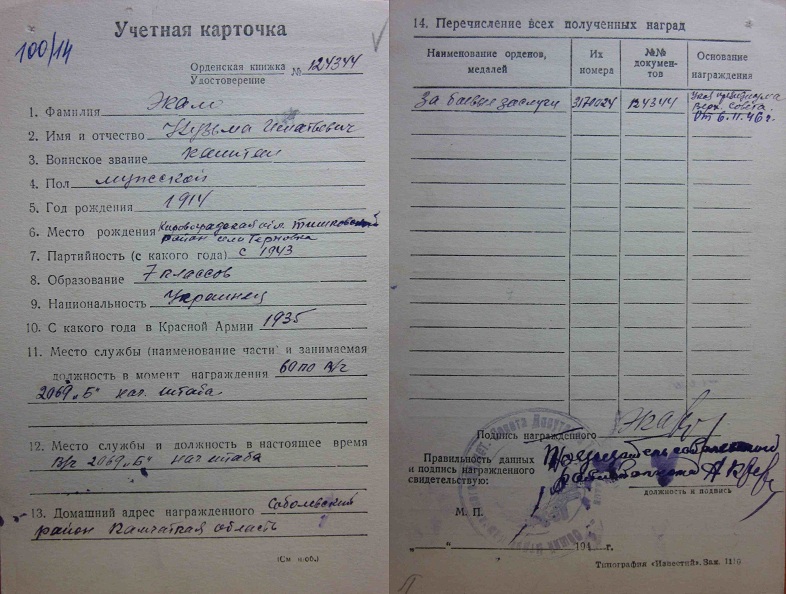 Учетная карточка
100/14
Орденская книжка
Удостоверение № 124344
1. Фамилия
2. Имя и отчество Кузьма Игнатьевич
3. Воинское звание Капитан
4. Пол мужской
5. Год рождения 1914
6. Место рождения Кировоградская обл. Тишковский
район село Терновка
7. Партийность (с какого года) с 1943
8. Образование 7 классов
9. Национальность Украинец
10. С какого года в Красной Армии 1935
11. Место службы (наименование части и занимаемая
должность в момент награждения 60 по в/ч
2069 „Б“ нач. штаба
12. Место службы и должность в настоящее время
в/ч 2069 „Б“ нач штаба
13. Домашний адрес награжденного Соболевский
район Камчаткая область
(См н об.)
14. Перечисление всех полученных наград
Наименование орденов, медалей
Их номера
№№ документов
Основание награждения
За боевые заслуги 3171024 124344 Указ президиума
Верх. Совета
от 6.11.46 г.
Подпись награжденного
Правильность данных
и подпись награжденного
свидетельствую:
должность и подпись
М. П.
„ “ 194 г.
Типография «Известий». Зак. 1110